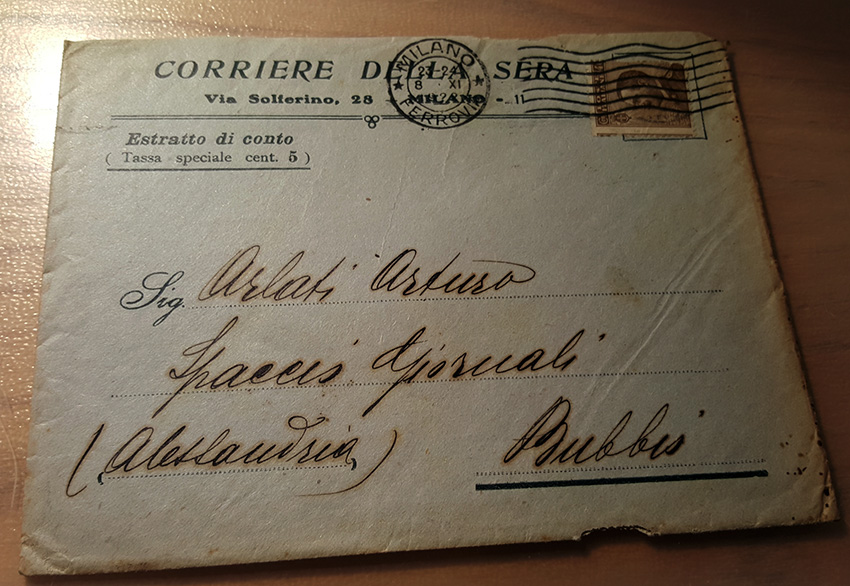 CORRIERE DELLA SERA
Via Solferino, 28 - MILANO - 11
MILANO
8 XI
FERROVIA
Estratto di conto
( Tassa speciale cent. 5 )
Sig. Arlati Arturo
Spaccio Giornali
(Alessandria) Bubbio